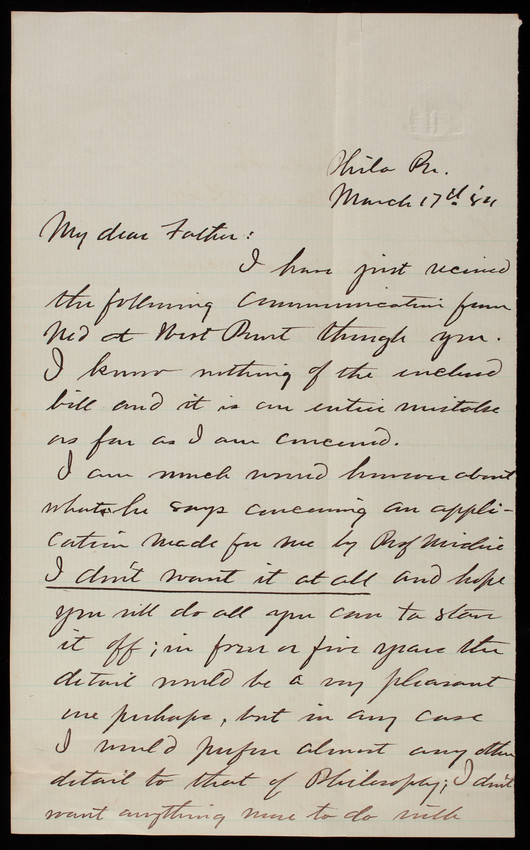 Phila Pa.
March 17th '84
My dear Father:
I have just received
the following communication from
Ned at West Point through you.
I know nothing of the enclosed
bill and it is an entire mistake
as far as I am concerned.
I am much worried however about
what he says concerning an appli-
cation made for me by Prof Michie
I don't want it at all and hope
you will do all you can to stave
it off; in four or five years the
detail would be a very pleasant
one perhaps, but in any case
I would prefer almost any other
detail to that of Philosophy; I don't
want anything more to do with